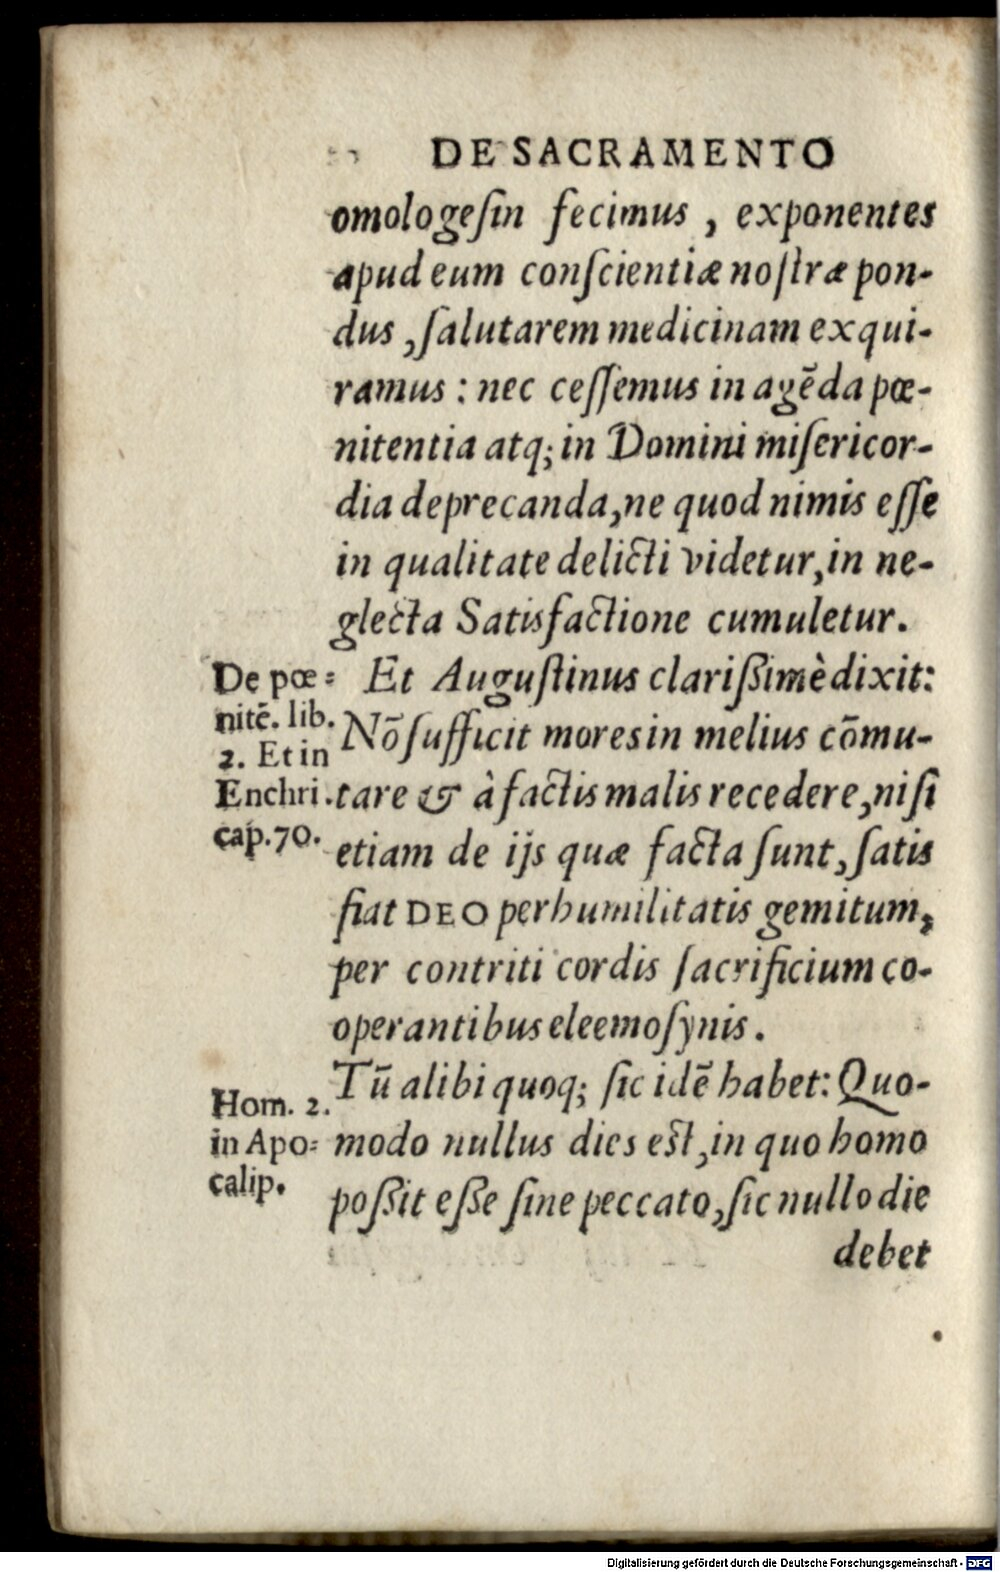 DE SACRAMENTO
omologeſin fecimus, exponentes
apud eum conſcientiæ noſtræ pon-
dus, ſalutarem medicinam exqui-
ramus: nec ceſſemus in agēda pœ-
nitentia atq; in Domini miſericor-
dia deprecanda, ne quod nimis eſſe
in qualitate delicti videtur, in ne-
glecta Satisfactione cumuletur.
Et Auguſtinus clariſsimè dixit:
Nō ſufficit mores in melius cōmu-
tare & à factis malis recedere, niſi
etiam de ijs quæ facta ſunt, ſatis
fiat DEO per humilitatis gemitum,
per contriti cordis ſacrificium co-
operantibus eleemoſynis.
Tū alibi quoq; ſic idē habet: Quo-
modo nullus dies eſt, in quo homo
poßit eße ſine peccato, ſic nullo die
debet
De pœ=
nitē. lib.
2. Et in
Enchri.
cap. 70.
Hom. 2.
in Apo=
calip.
Digitalisierung gefördert durch die Deutsche Forschungsgemeinschaft - DFG